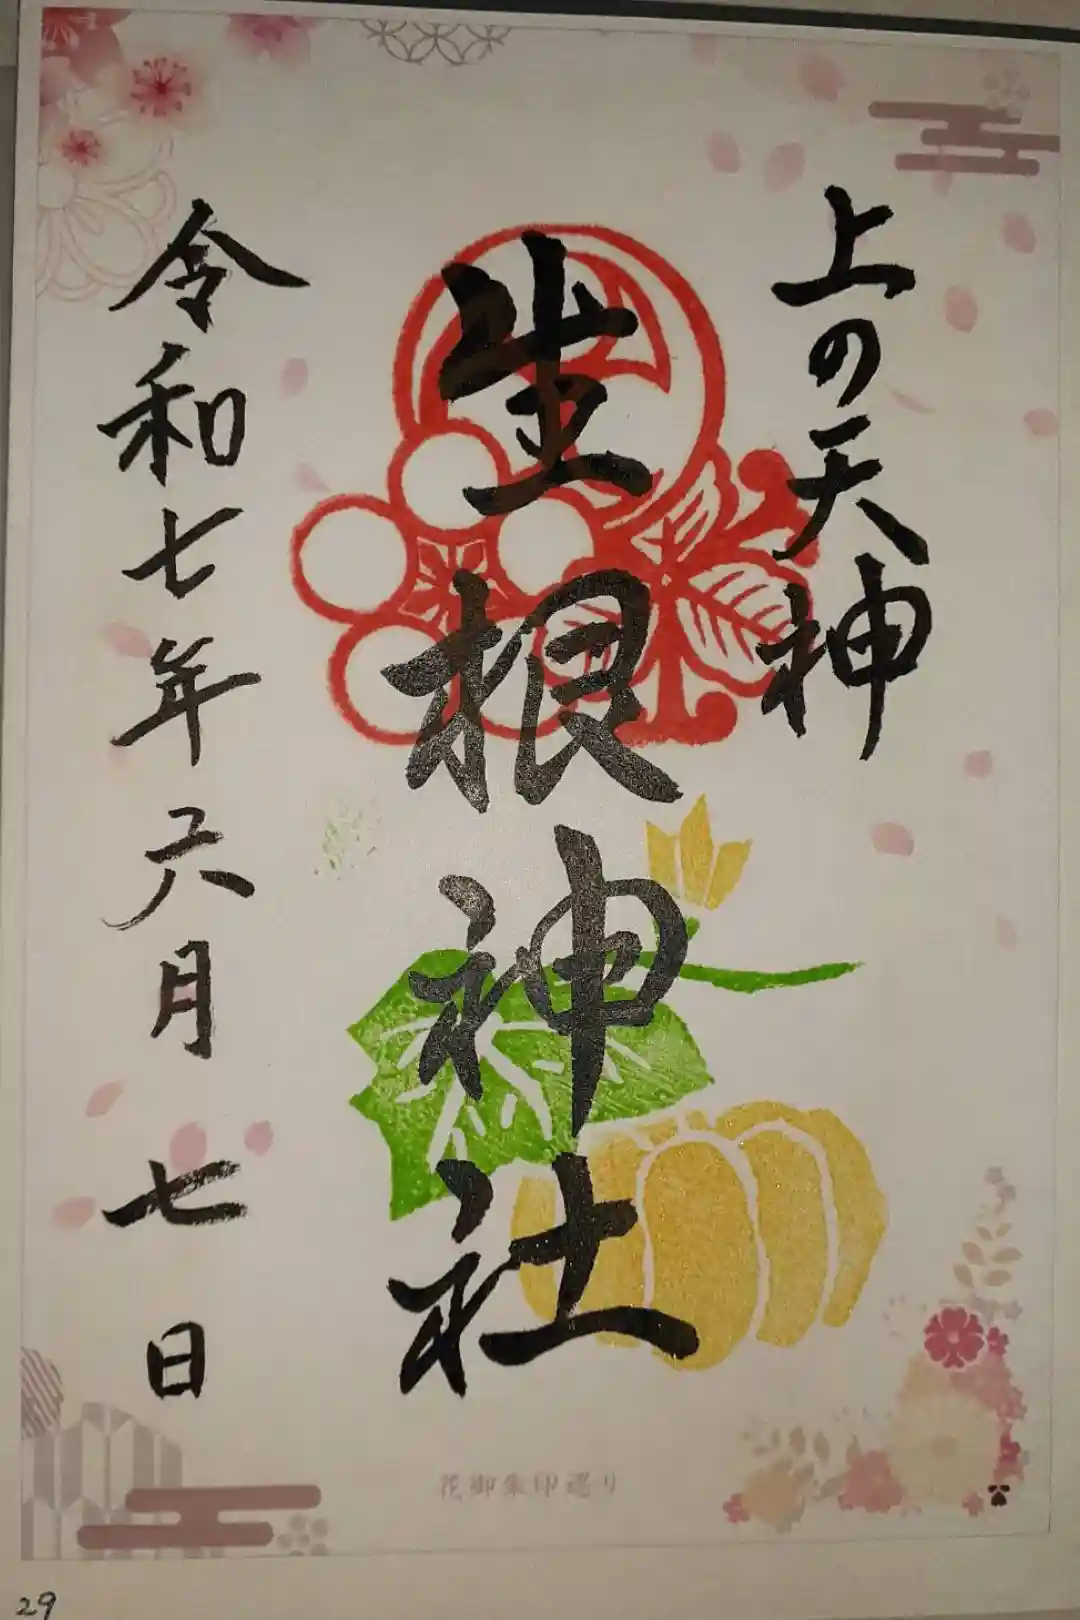 上の天神
生根神社
令和七年六月七日
花御朱印巡り
29